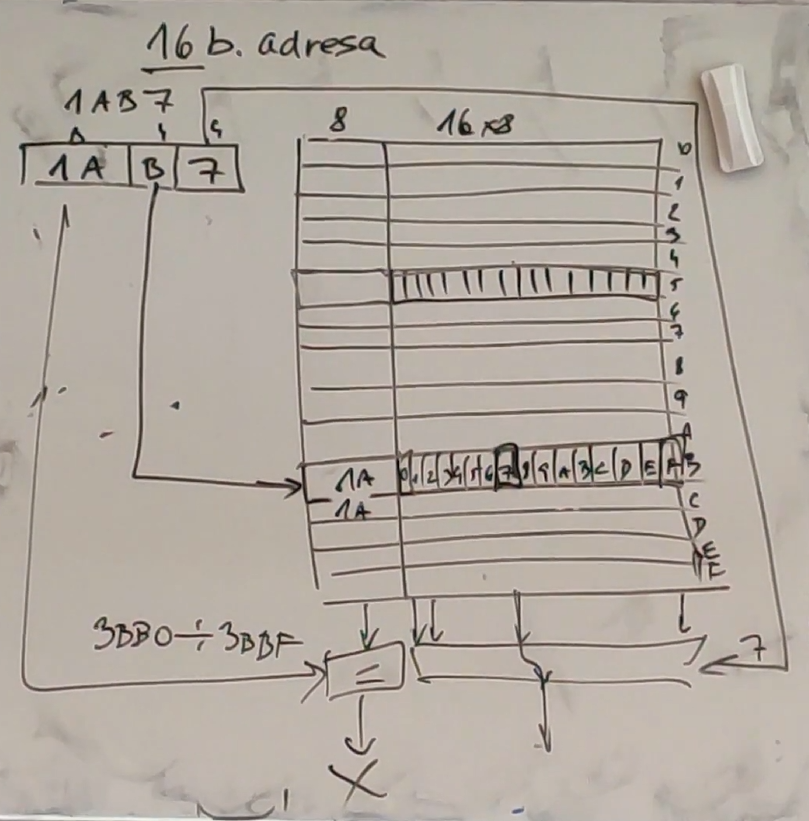 16 b. adresa
1AB7
8 4 4
1A B 7
8 16x8
0
1
2
3
4
5
6
7
8
9
A
1A 0 1 2 3 4 5 6 7 8 9 A B C D E F B
1A C
D
E
F
3BB0÷3BBF
7
=
X